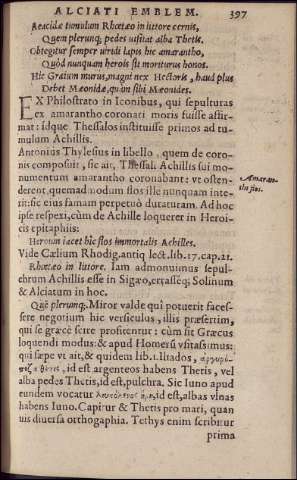 ALCIATI EMBLEM. 397
Aeacidæ tumulum Rhœtæo in littore cernis,
Quem plerunq; pedes visitat alba Thetis.
Obtegitur semper viridi lapis hic amarantho,
Quòd nunquam herois sit moriturus honos.
Hic Graium murus, magni nex Hectoris, haud plus
Debet Mæonidæ, quàm sibi Mæonides.
EX Philostrato in Iconibus, qui sepulturas
ex amarantho coronari moris fuisse affir-
mat: idque Thessalos instituisse primos ad tu-
mulum Achillis.
Antonius Thylesius in libello, quem de coro-
nis composuit, sic ait, Thessali Achillis sui mo-
numentum amarantho coronabant: vt osten-
derent, quemadmodum flos ille nunquam inte-
rit: sic eius famam perpetuò duraturam. Ad hoc
ipse respexi, cùm de Achille loquerer in Heroi-
cis epitaphiis:
Amaran-
thi flos.
Heroum iacet hîc flos immortalis Achilles.
Vide Cælium Rhodig. antiq lect. lib. 17. cap. 21.
Rhœtæo in littore. Iam admonuimus sepul-
chrum Achillis esse in Sigæo, errasseq; Solinum
& Alciatum in hoc.
Quē plerumq;. Miror valde qui potuerit faces-
sere negotium hic versiculus, illis præsertim,
qui se græcè scire profitentur: cùm sit Græcus
loquendi modus: & apud Homerū vsitatissimus:
qui sæpe vt ait, & quidem lib. 1. Iliados, ἀργυρό-
πεζα θέτις, id est argenteos habens Thetis, vel
alba pedes Thetis, id est, pulchra. Sic Iuno apud
eundem vocatur λευκώλενος ἥρη, id est, albas vlnas
habens Iuno. Capitur & Thetis pro mari, quan
uis diuersa orthogaphia. Tethys enim scribitur
prima